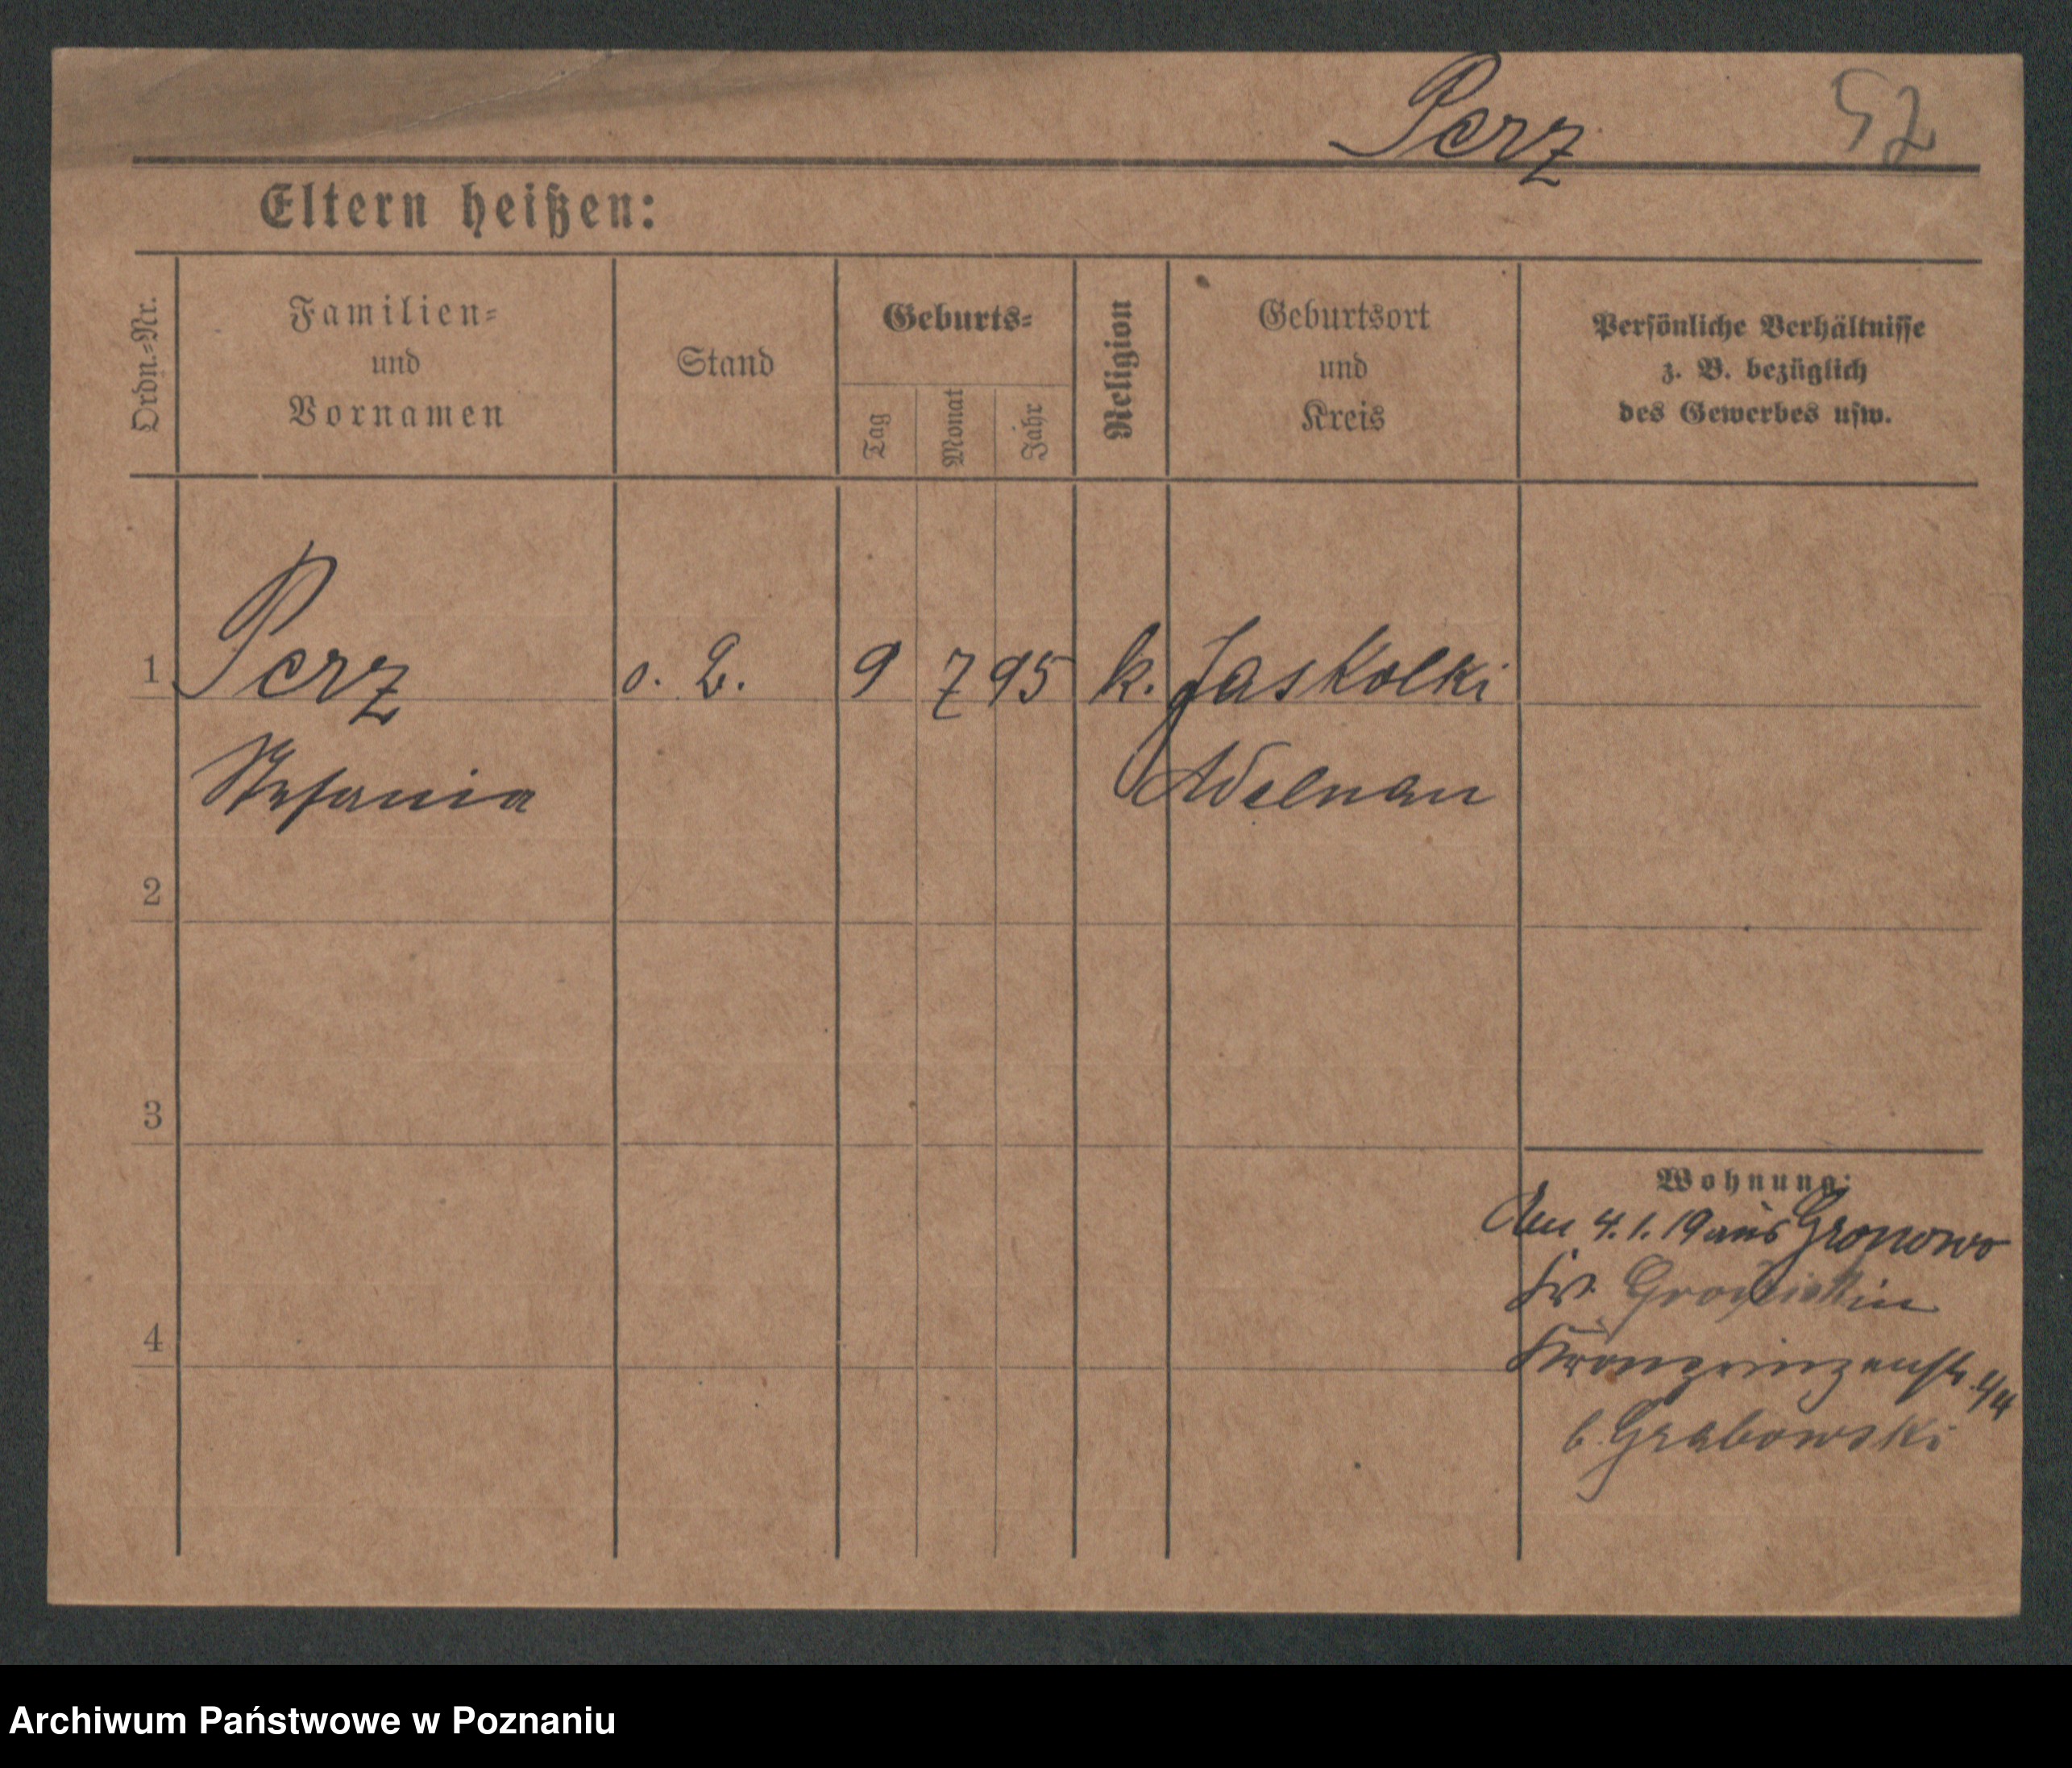 Perz 52
Eltern heißen:
Ordn.-Nr.
Familien-
und
Vornamen
Stand
Geburts-
Tag
Monat
Jahr
Religion
Geburtsort
und
Kreis
Persönliche Verhältnisse
z. B. bezüglich
des Gewerbes usw.
1 Perz o. B. 9 7 95 k. Jaskolki
Stefania Adelnau
2
3
Wohnung:
Am 4.1.19 aus Gronowo
Kr.
4
Kronprinzenstr.
b. Grabowski
Archiwum Państwowe w Poznaniu